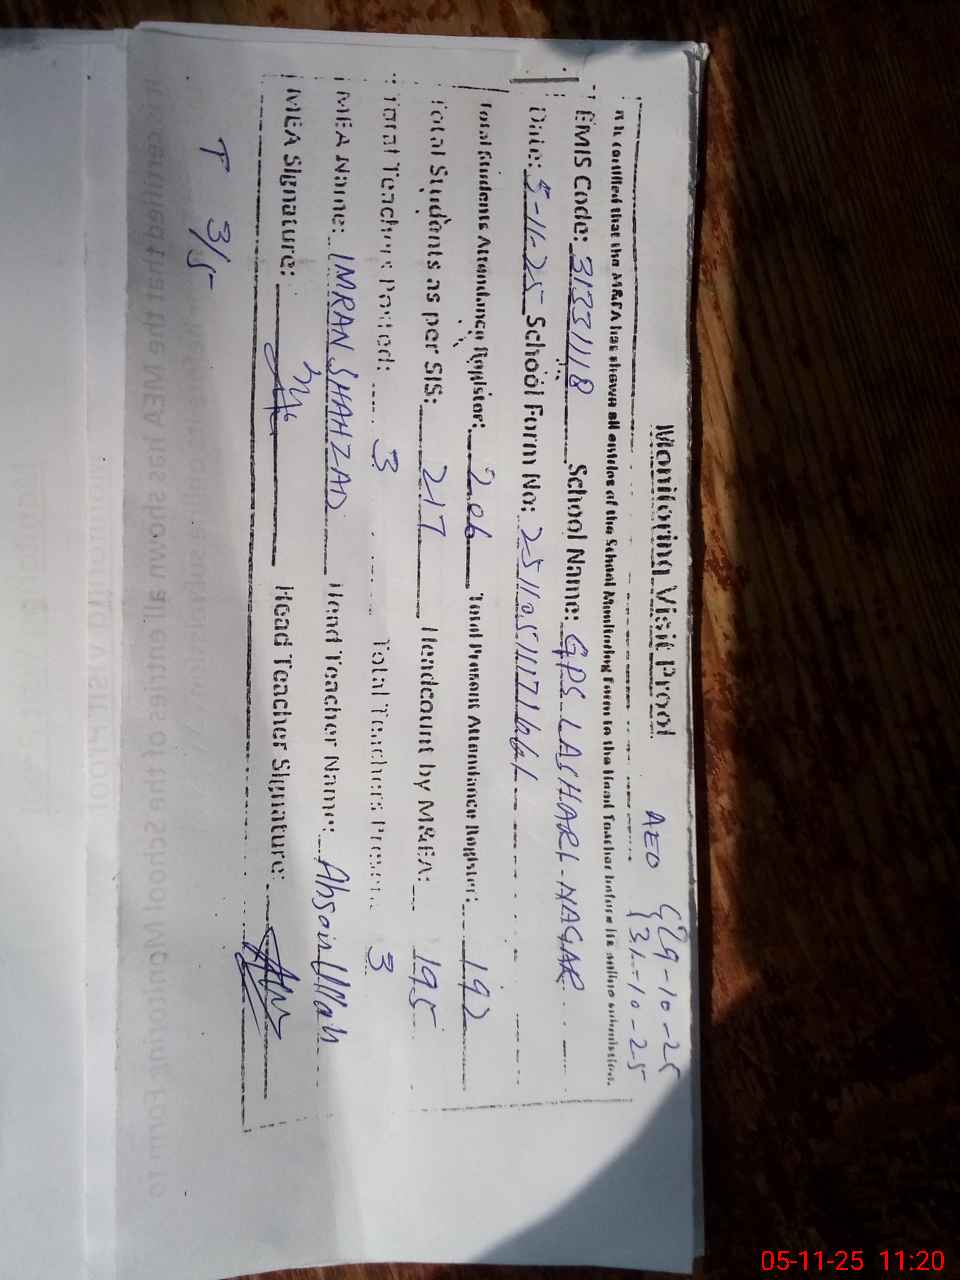 Monitoring Visit Proof
AEO 29-10-25
31-10-25
It is certified that the M&EA has shown all entries of the School Monitoring Form to the Head Teacher before its online submission.
EMIS Code: 31331118 School Name: GPS LASHARI-NAGAR
Date: 5-11-25 School Form No:
Total Students Attendance Register: 206 Total Present Attendance Register: 192
Total Students as per SIS: 217 Headcount by M&EA: 195
Total Teachers Posted: 3 Total Teachers Present: 3
MEA Name: IMRAN SHAHZAD Head Teacher Name: Ahsan Ullah
MEA Signature: Head Teacher Signature:
T 3/5
05-11-25 11:20